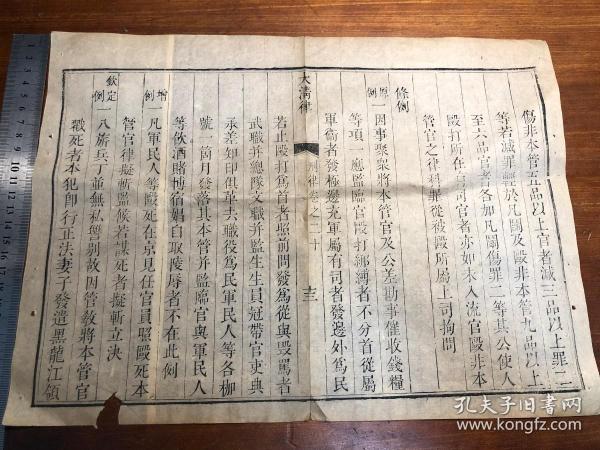 傷非本管五品以上官者減三品以上罪二
等若減罪輕於凡鬬及毆非本管九品以上
至六品官者各加凡鬬傷罪二等其公使人
毆打所在有司官者亦如未入流官毆非本
管官之律科罪從被毆所屬上司拘問
條例
原例一因事聚衆將本管官及公差勘事催收錢糧
等項一應監臨官毆打綁縛者不分首從屬
軍衛者發極邊充軍屬有司者發邊外爲民
大清律 刑律卷之二十 十三
若止毆打爲首者照前問發爲從與毀罵者
武職并總隊文職并監生生員冠帶官吏典
承差知印俱革去職役爲民軍民人等各枷
號一箇月發落其本管并監臨官與軍民人
等飲酒賭博宿娼自取陵辱者不在此例
增例一凡軍民人等毆死在京見任官員照毆死本
管官律擬斬監候若謀死者擬斬立決
欽定例一八旗兵丁並無私讐別故因管敎將本管官
戳死者本犯即行正法妻子發遣黑龍江領
孔夫子旧書网
www.kongfz.com